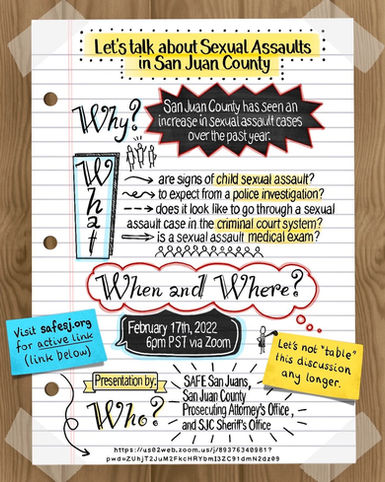 Let's talk about Sexual Assaults
in San Juan County
Why?
San Juan County has seen an
increase in sexual assault cases
over the past year.
What
are signs of child sexual assault?
to expect from a police investigation?
does it look like to go through a sexual
assault case in the criminal court system?
is a sexual assault medical exam?
When and Where?
February 17th, 2022
6pm PST via Zoom
Visit safesj.org
for active link
(link below)
Let's not "table"
this discussion
any longer.
Presentation by:
Who?
SAFE San Juans,
San Juan County
Prosecuting Attorney's Office,
and SJC Sheriff's Office
https://us02web.zoom.us/j/89376340981?
pwd=ZUhjT2JuM2FkcHRYbmI3ZC91dmN2dz09